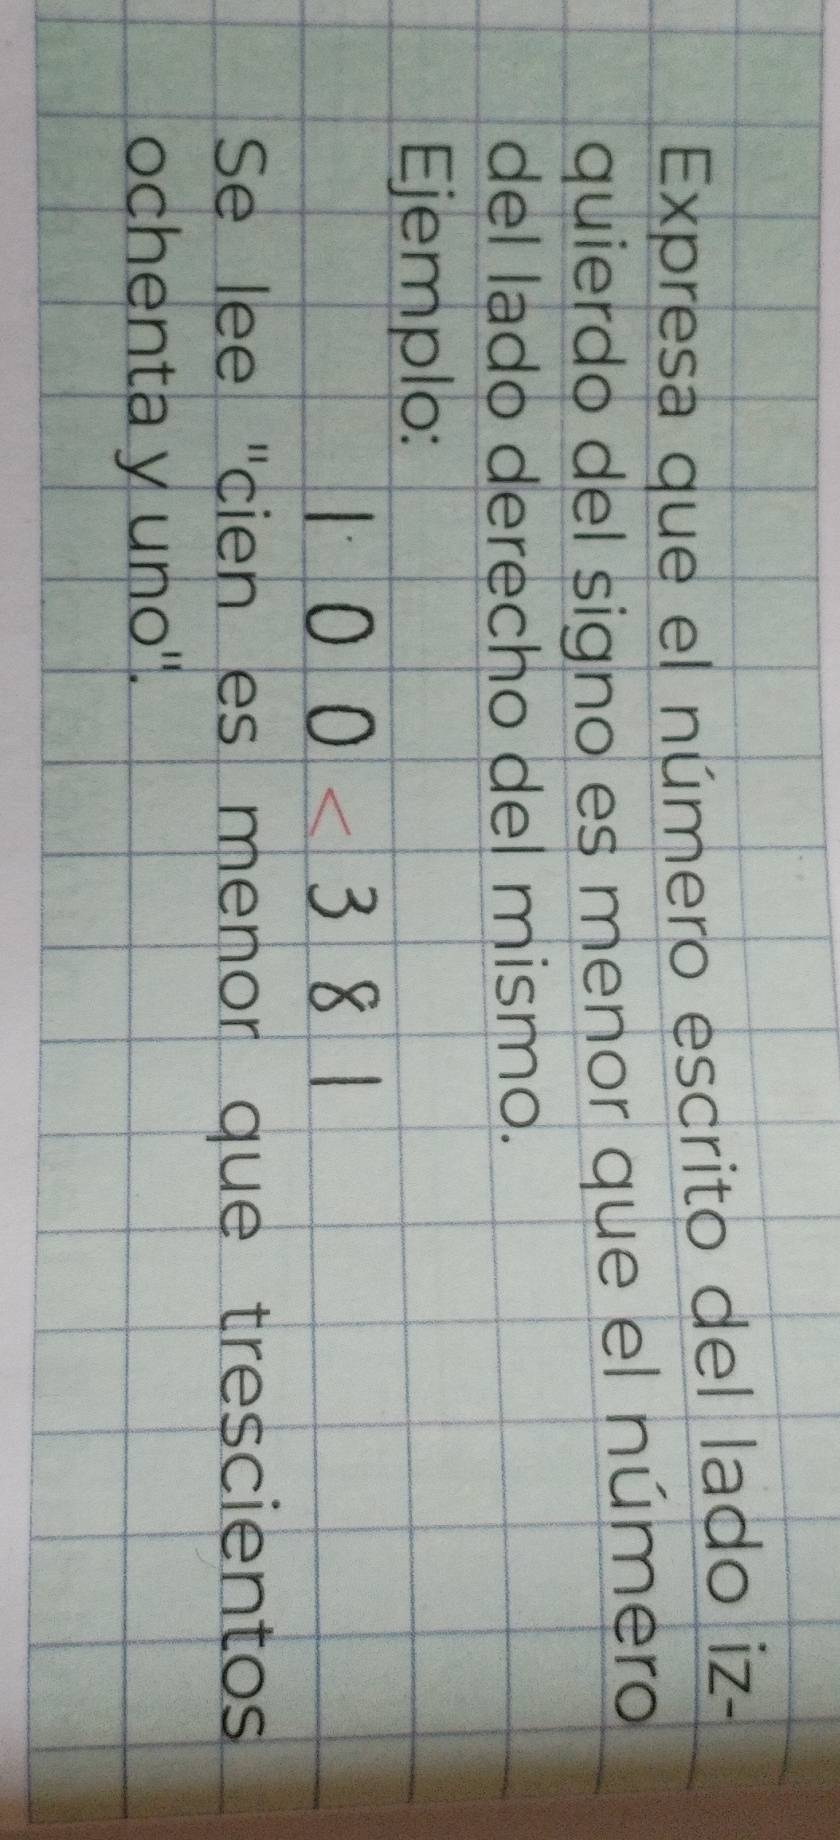 Expresa que el número escrito del lado iz-
quierdo del signo es menor que el número
del lado derecho del mismo.
Ejemplo:
100 < 381
Se lee "cien es menor que trescientos
ochenta y uno".